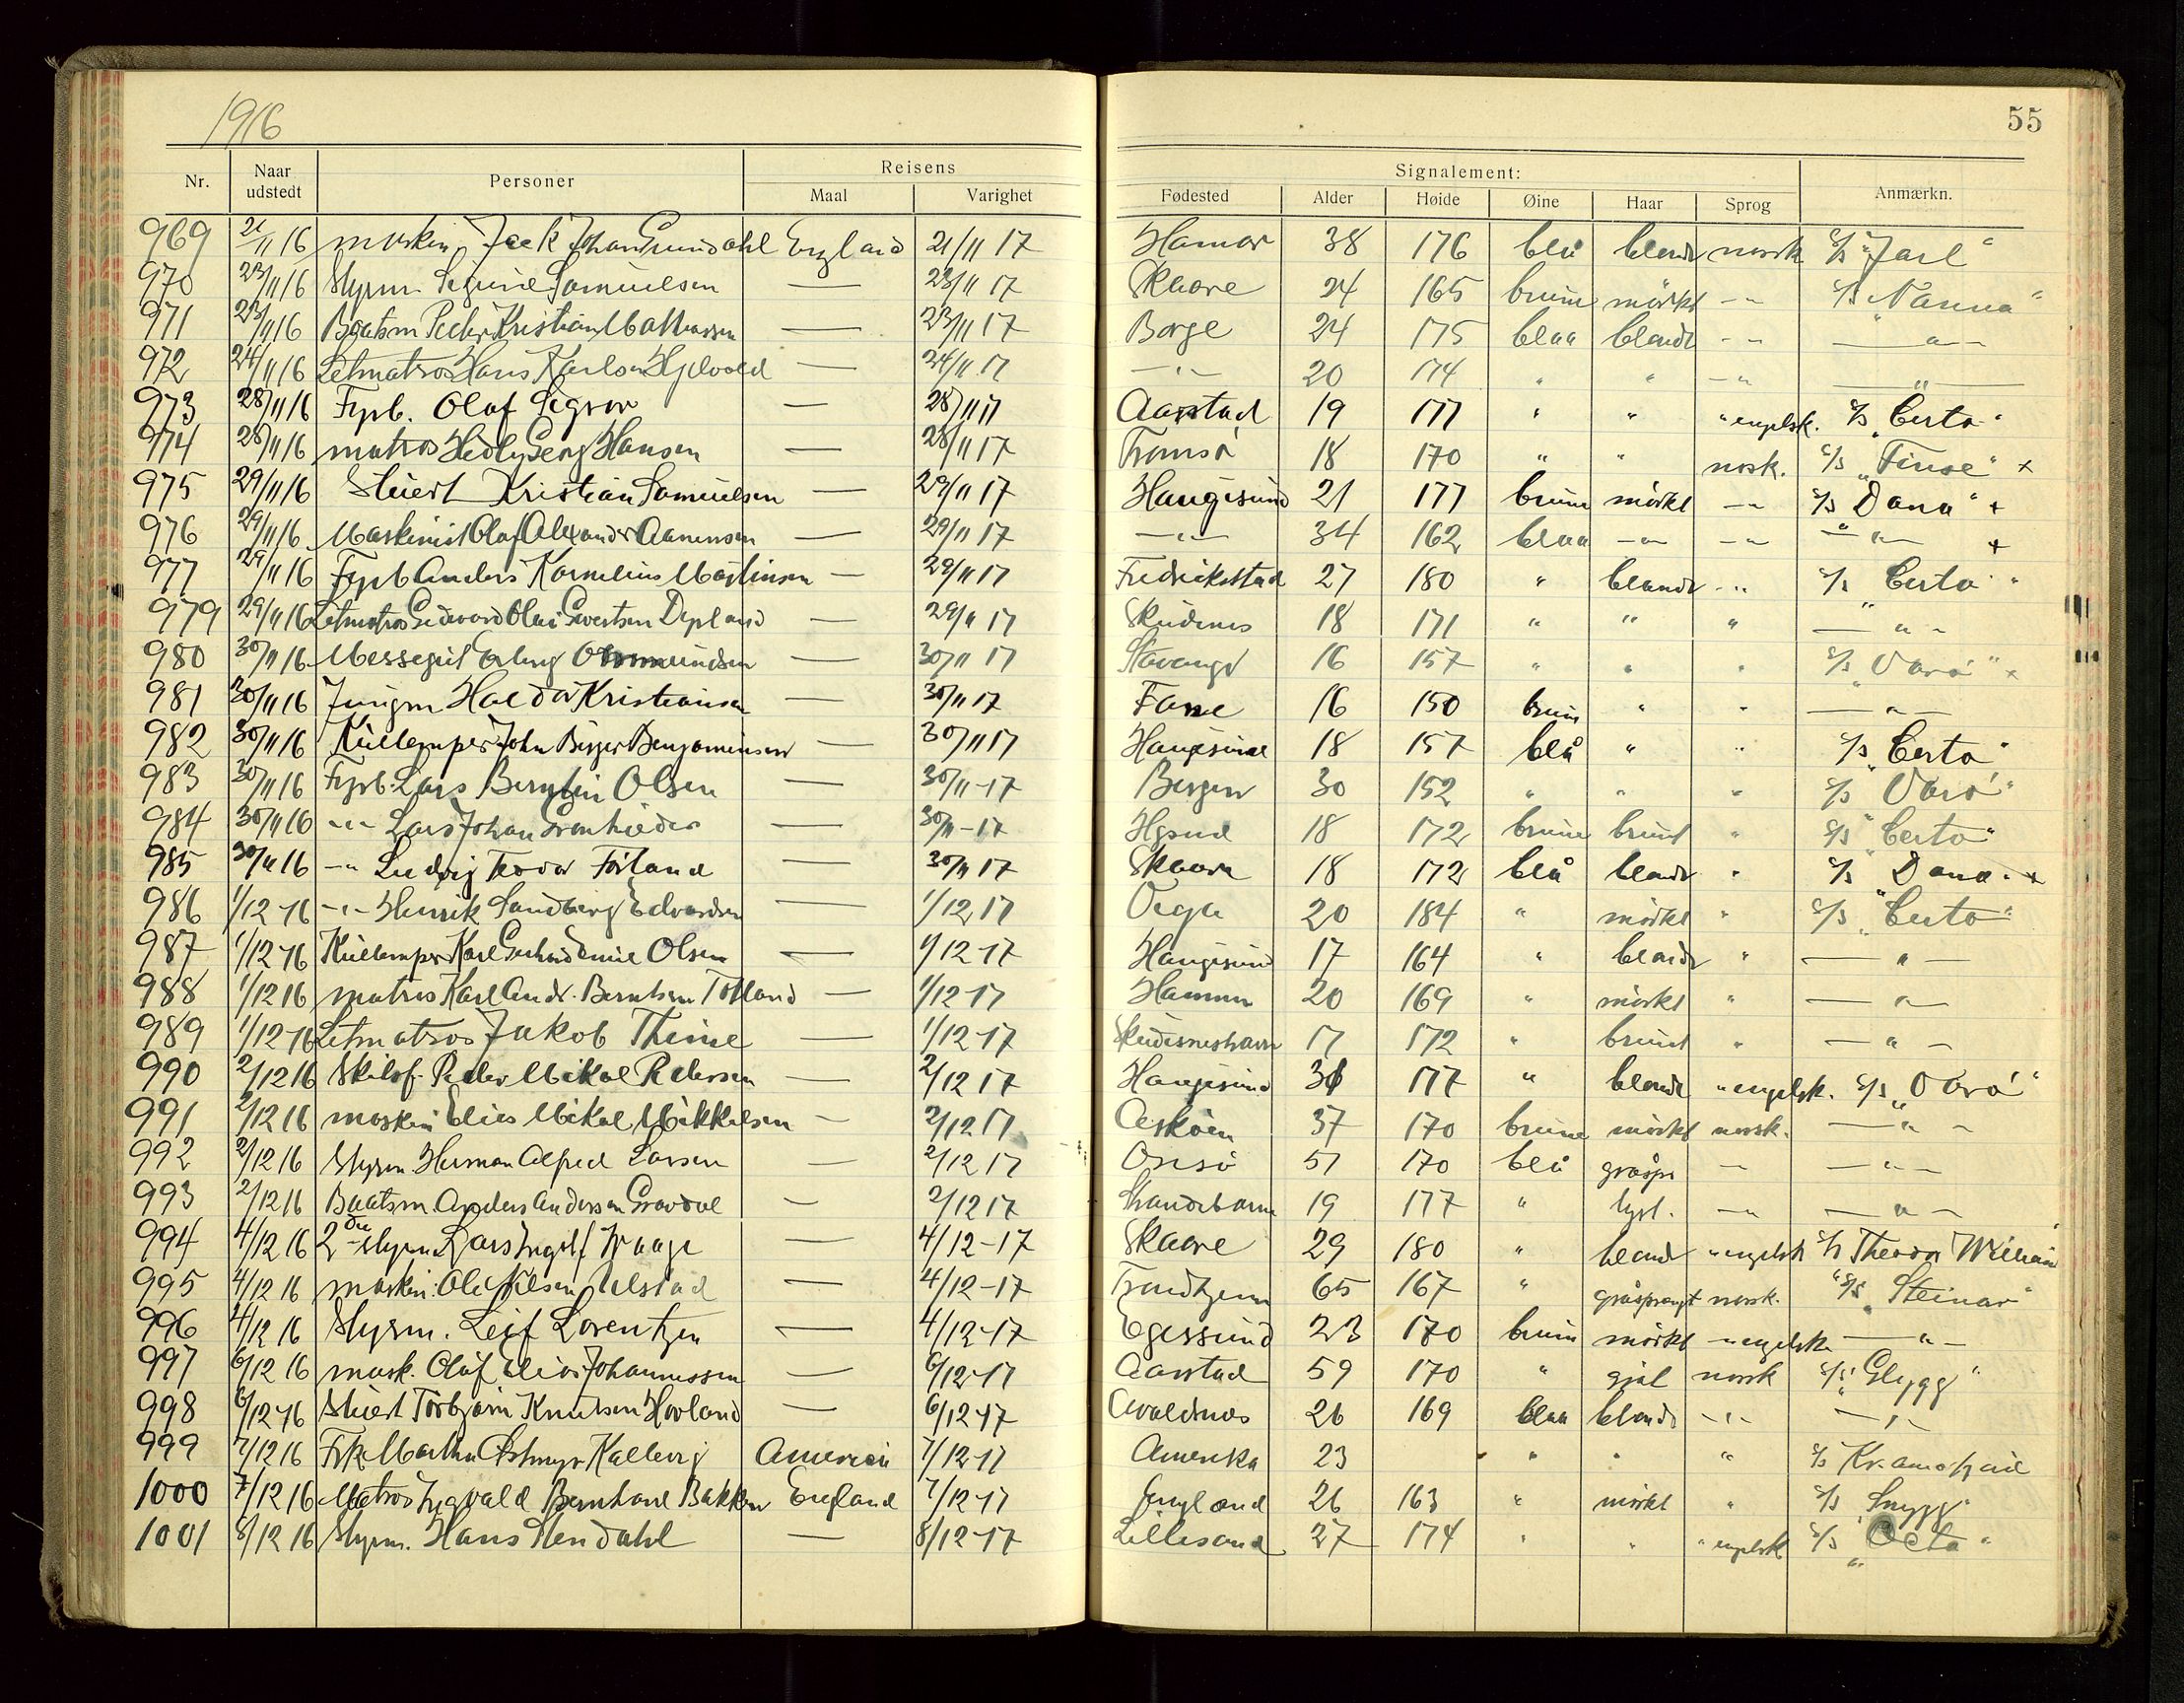 1916
55
Nr. Naar udstedt Personer Reisens Maal Varighet Fødested Signalement: Alder Høide Øine Haar Sprog Anmærkn.
969 21/11 16 maskin Johan Grundahl England 21/11 17 Hamar 38 176 blå blondt norsk S/S "Jarl"
970 23/11 16 Styrm. Sigurd Samuelsen — 23/11 17 Skaare 24 165 brune mörkt -"- S/S "Nanna"
971 23/11 16 Baatsm Peder Kristian Mathiassen — 23/11 17 Borge 24 175 blaa blondt -"- —"—
972 24/11 16 Letmatros Hans Karlsen — 24/11 17 —"— 20 174 " " -"- —"—
973 28/11 16 Fyrb. Olaf — 28/11 17 Aarstad 19 177 " " " engelsk. S/S "Certo"
974 28/11 16 matros Hansen — 28/11 17 Tromsö 18 170 " " norsk. S/S "Finse" x
975 29/11 16 Stuert Kristian Samuelsen — 29/11 17 Haugesund 21 177 brune mörkt -"- S/S "Dana" x
976 29/11 16 Maskinist Olaf Alexander Aanensen — 29/11 17 —"— 34 162 blaa -"- -"- —"— x
977 29/11 16 Fyrb Anders Kornelius Martinsen — 29/11 17 Fredrikstad 27 180 " blondt -"- S/S "Certo"
979 29/11 16 Letmatros — 29/11 17 Skudenes 18 171 " " " —"—
980 30/11 16 Messegut Erling — 30/11 17 Stavanger 16 157 " " " S/S x
981 30/11 16 Jungm Haldor Kristiansen — 30/11 17 Fane 16 150 brun " " —"—
982 30/11 16 Kullemper John Birger Benjaminsen — 30/11 17 Haugesund 18 157 blå " " S/S "Certo"
983 30/11 16 Fyrb. Lars Olsen — 30/11-17 Bergen 30 152 " " " S/S
984 30/11 16 -"- Lars Johan — 30/11-17 Hgsund 18 172 brune brunt " S/S "Certo"
985 30/11 16 -"- Ludvig Teodor Förland — 30/11 17 Skaare 18 172 blå blondt " S/S "Dana" x
986 1/12-16 -"- Henrik Sandberg Edvardsen — 1/12 17 Vega 20 184 " mörkt " S/S "Certo"
987 1/12-16 Kullemper Karl Olsen — 1/12-17 Haugesund 17 164 " blondt " —"—
988 1/12 16 matros Karl Andr. Berntsen — 1/12-17 20 169 " mörkt " —"—
989 1/12-16 Letmatros Jakob — 1/12-17 Skudesneshavn 17 172 " brunt " —"—
990 2/12 16 Peder Mikal Pedersen — 2/12 17 Haugesund 177 " blondt " engelsk. S/S
991 2/12 16 maskin Elies Mikal Mikkelsen — 2/12 17 Asköen 37 170 brune mörkt norsk. —"—
992 2/12 16 Styrm. Herman Alfred Larsen — 2/12 17 Onsö 51 170 blå — —"—
993 2/12 16 Baatsm. Anders Andersen Gravdal — 2/12 17 Strandebarm 19 177 " lyst. -"- —"—
994 4/12 16 2den Styrm. Lars Ingolf Waage — 4/12-17 Skaare 29 180 " blondt " engelsk S/S "Theodor William"
995 4/12 16 maskin: Ole Nilsen Ulstad — 4/12-17 Trondhjem 65 167 " gråsprengt norsk. S/S "Steinar"
996 4/12 16 Styrm. Leif Lorentzen — 4/12-17 Egersund 23 170 brun mörkt -"- engelsk —"—
997 6/12 16 mask. Olaf Elias Johannessen — 6/12-17 Aarstad 59 170 " norsk S/S "Glygg"
998 6/12-16 Stuert Torbjörn Knutsen Hovland — 6/12-17 Avaldsnes 26 169 blaa blondt -"- —"—
999 7/12 16 Frk. Martha — Amerika 7/12-17 Amerika 23 " " " S/S
1000 7/12 16 Matros Ingvald Bernhard Bakken England 7/12-17 England 26 163 " mörkt " S/S "Snygg"
1001 8/12 16 Styrm. Hans Stendahl — 8/12-17 Lillesand 27 174 " " " engelsk S/S "Octa"